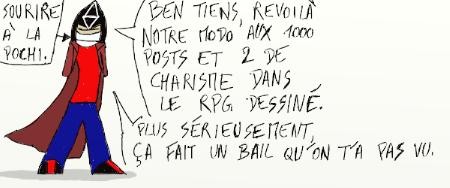 SOURIRE
À LA
POCHI.
BEN TIENS, REVOILÀ
NOTRE MODO AUX 1000
POSTS ET 2 DE
CHARISME DANS
LE RPG DESSINÉ.
PLUS SÉRIEUSEMENT,
ÇA FAIT UN BAIL QU'ON T'A PAS VU.